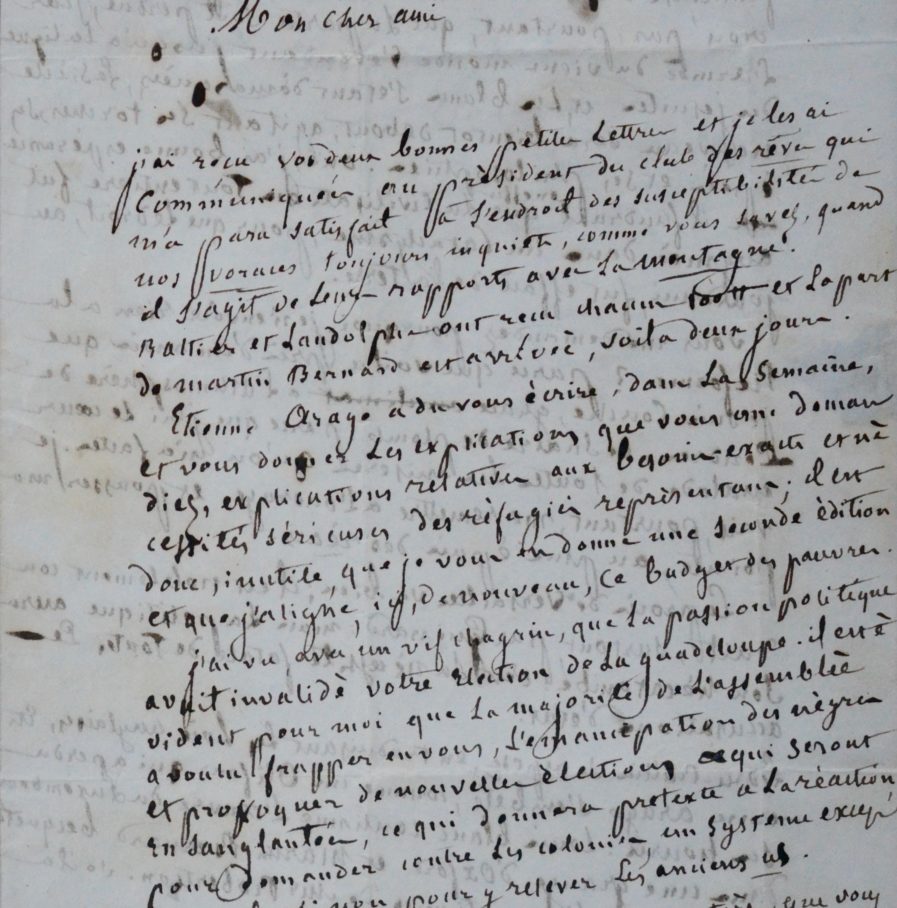 Mon cher ami
j'ai reçu vos deux bonnes petites Lettres et je les ai
Communiquées au président du club des rêves qui
m'a paru satisfait à l'endroit des susceptibilités de
nos voraces toujours inquiets, comme vous savez, quand
il s'agit de leurs rapports avec La montagne.
Rattier et Landolphe ont reçu chacun et La part
de martin Bernard est arrivée, voilà deux jours.
Etienne Arago a du vous écrire, dans La Semaine,
et vous donner Les explications que vous me deman
diez, explications relatives aux besoins exacts et né
cessités sérieuses des réfugiés représentans; il est
donc, inutile, que je vous en donne une seconde édition
et que j'aligne, ici, de nouveau, ce budget des pauvres.
j'ai vu avec un vif chagrin, que La passion politique
avait invalidé votre élection de La guadeloupe. il est é
vident pour moi que La majorité de L'assemblée
a voulu frapper en vous, L'émancipation des nègres
et provoquer de nouvelles élections qui seront
ensanglantées, ce qui donnera prétexte à La réaction
pour demander contre Les colonies, un système excep
non pour y relever Les anciens us.
que vous